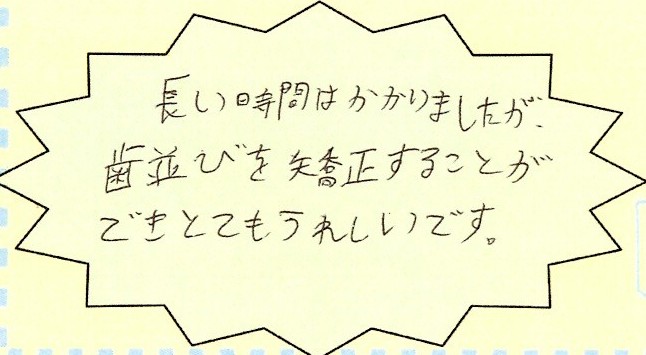 長い時間はかかりましたが、
歯並びを矯正することが
できとてもうれしいです。